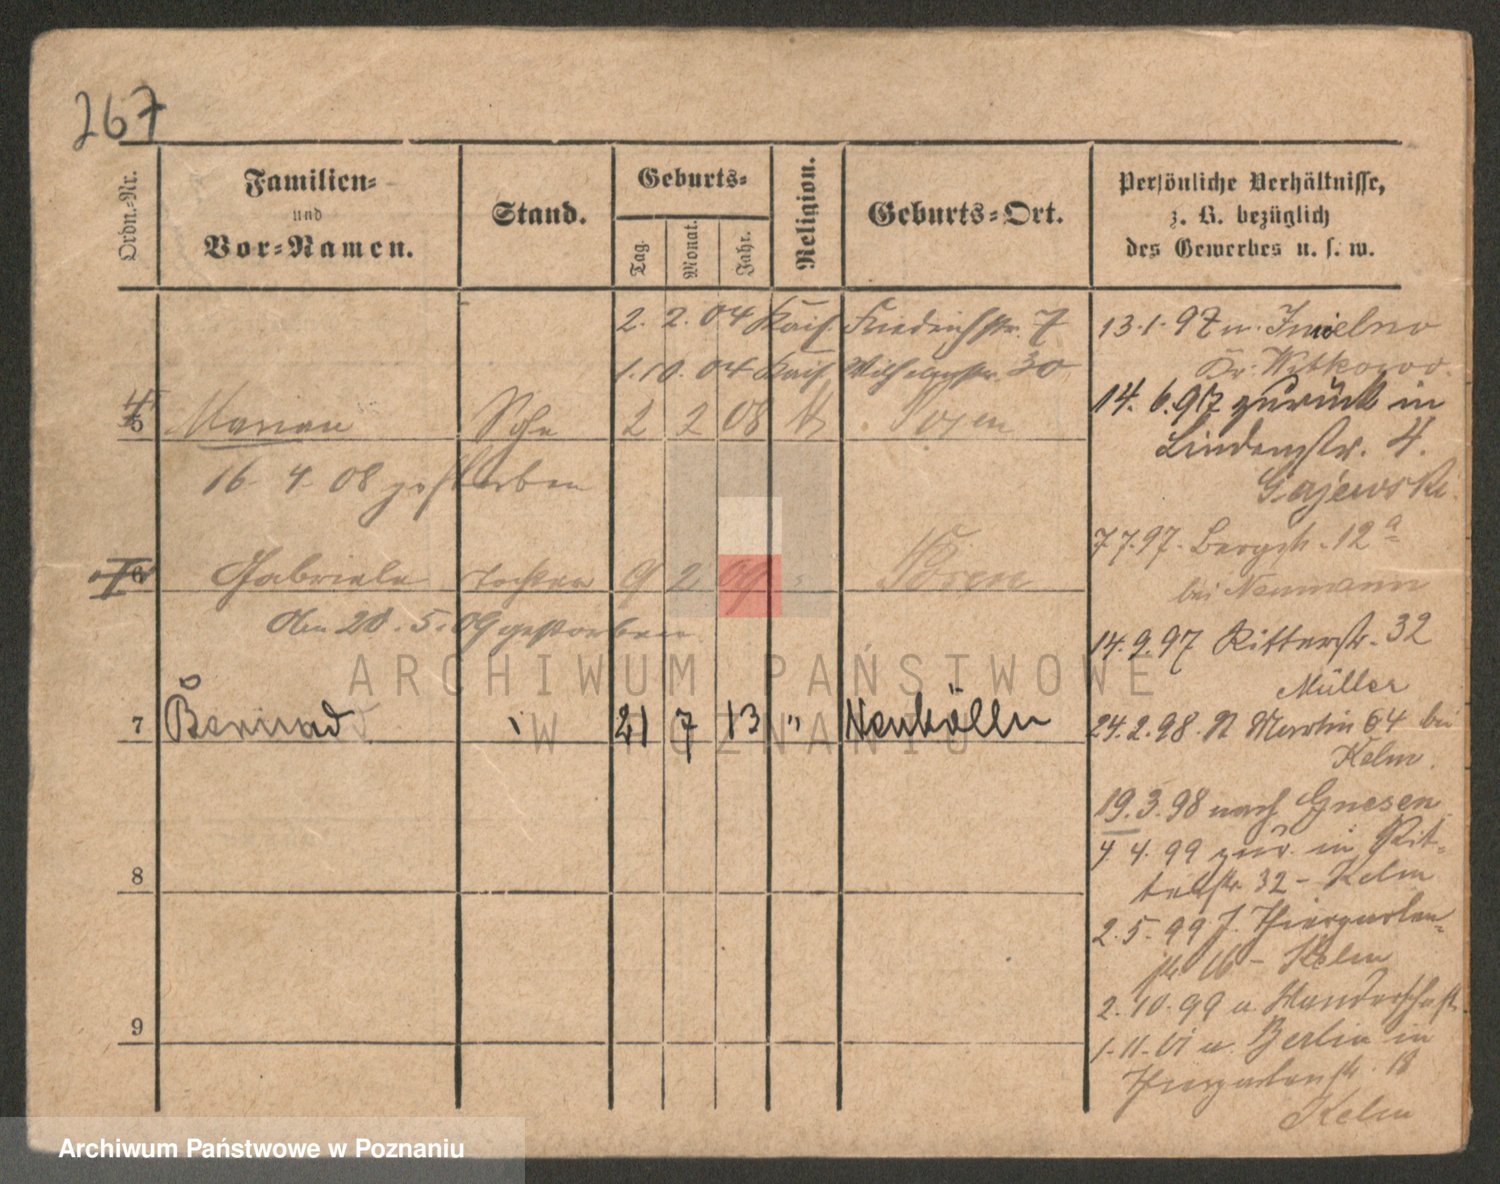 267
Ordn.-Nr.
Familien-
und
Vor-Namen.
Stand.
Geburts-
Tag.
Monat.
Jahr.
Religion.
Geburts-Ort.
Persönliche Verhältnisse,
z. B. bezüglich
des Gewerbes u. s. w.
2. 2. 04 Kais. Friedrichstr. 7
1. 10. 04 Kais. Wilhelmstr. 30
5 Marian Sohn 2 2 08 Posen
16. 4. 08 gestorben
6 Gabriele Tochter 9 2 09 " Posen
den 20. 5. 09 gestorben
7 Bernard " 21 7 13 " Neukölln
8
9
13. 1. 97 n. Imielno
Kr. Witkowo.
14. 6. 97 zurück in
Lindenstr. 4.
Gajewski.
7. 7. 97. Bergstr. 12a
bei Neumann
14. 9. 97 Ritterstr. 32
Müller
24. 2. 98. St Martin 64 bei
Kelm.
19. 3. 98 nach Gnesen
4. 4. 99 zur. in Rit-
terstr. 32 - Kelm
2. 5. 99 Thiergarten-
str. 16 - Kelm
2. 10. 99 a. Wanderschaft
1. 11. 01 v. Berlin in
Thiergartenstr. 18
Kelm
ARCHIWUM PAŃSTWOWE
W POZNANIU
Archiwum Państwowe w Poznaniu